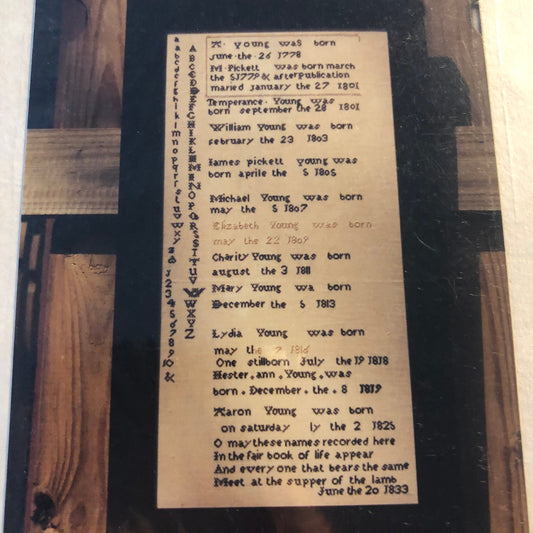 a a b c d e f g h i k l m n o p q r r s t u v w x y z & 1 2 3 4 5 6 7 8 9 10 &
A B C D E F G H I K L M N O P Q R S T U V W X Y Z
A · Young was born
june · the · 26 1778
M · Pickett was born march
the 5 1779 & after publication
maried january the 27 1801
Temperance · Young was
born september the 28 1801
William Young was born
february the 23 1803
James pickett young was
born aprile the 5 1805
Michael Young was born
may the 5 1807
Elizabeth Young was born
may the 22 1809
Charity Young was born
august the 3 1811
Mary Young wa born
December the 5 1813
Lydia Young was born
may the 1816
One stillborn July the 19 1818
Hester · ann · Young · was
born · December · the · 8 1819
Aaron Young was born
on saturday ly the 2 1825
O may these names recorded here
In the fair book of life appear
And every one that bears the same
Meet at the supper of the lamb
June the 20 1833